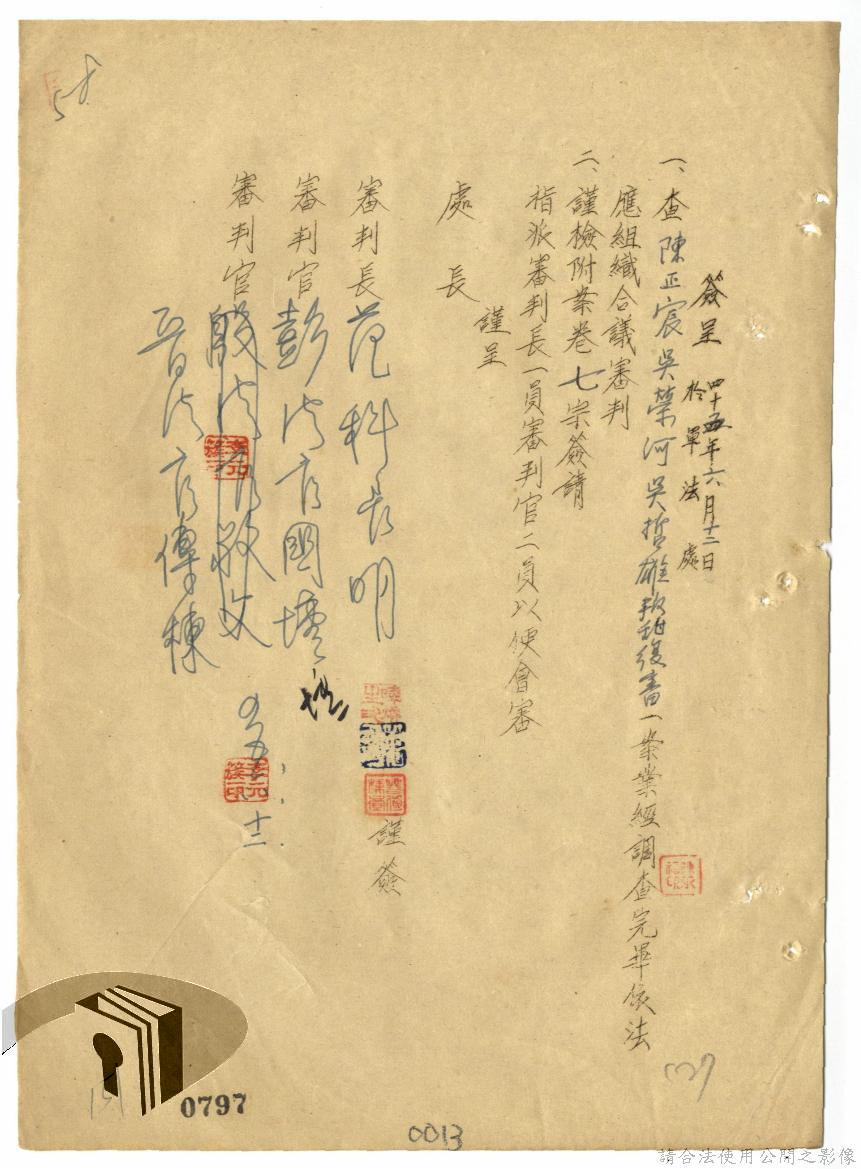 簽呈 四十五年六月十二日
於軍法處
一、查陳正宸吳榮河吳哲雄叛亂復審一案業經調查完畢依法
應組織合議審判
二、謹檢附案卷七宗簽請
指派審判長一員審判官二員以便會審
謹呈
處長
審判長范科長明
謹簽
審判官彭法官國壎
審判官殷法官敬文
晉法官傳棟
十二
0797
0013
請合法使用公開之影像